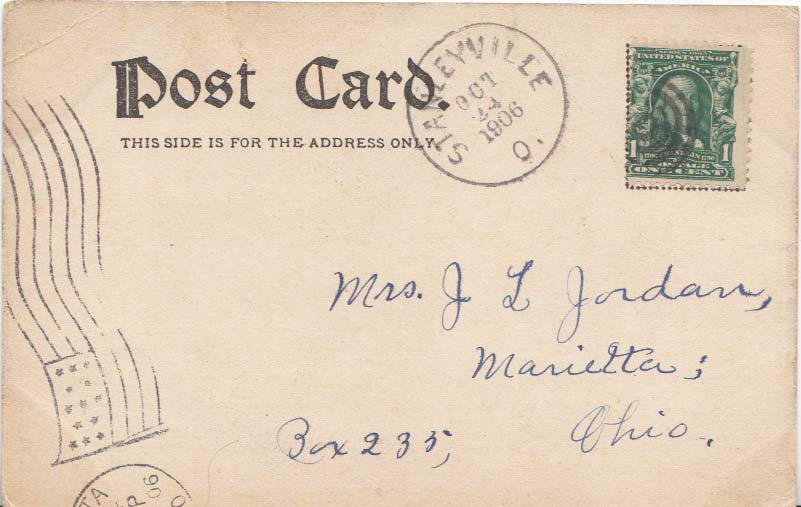 Post Card.
THIS SIDE IS FOR THE ADDRESS ONLY.
STANLEYVILLE
OCT
1906
O.
SERIES 1902
UNITED STATES OF
AMERICA
1 1
POSTAGE
ONE CENT
Mrs. J L Jordan,
Marietta;
Box 235,
Ohio.
TA
P
06
O